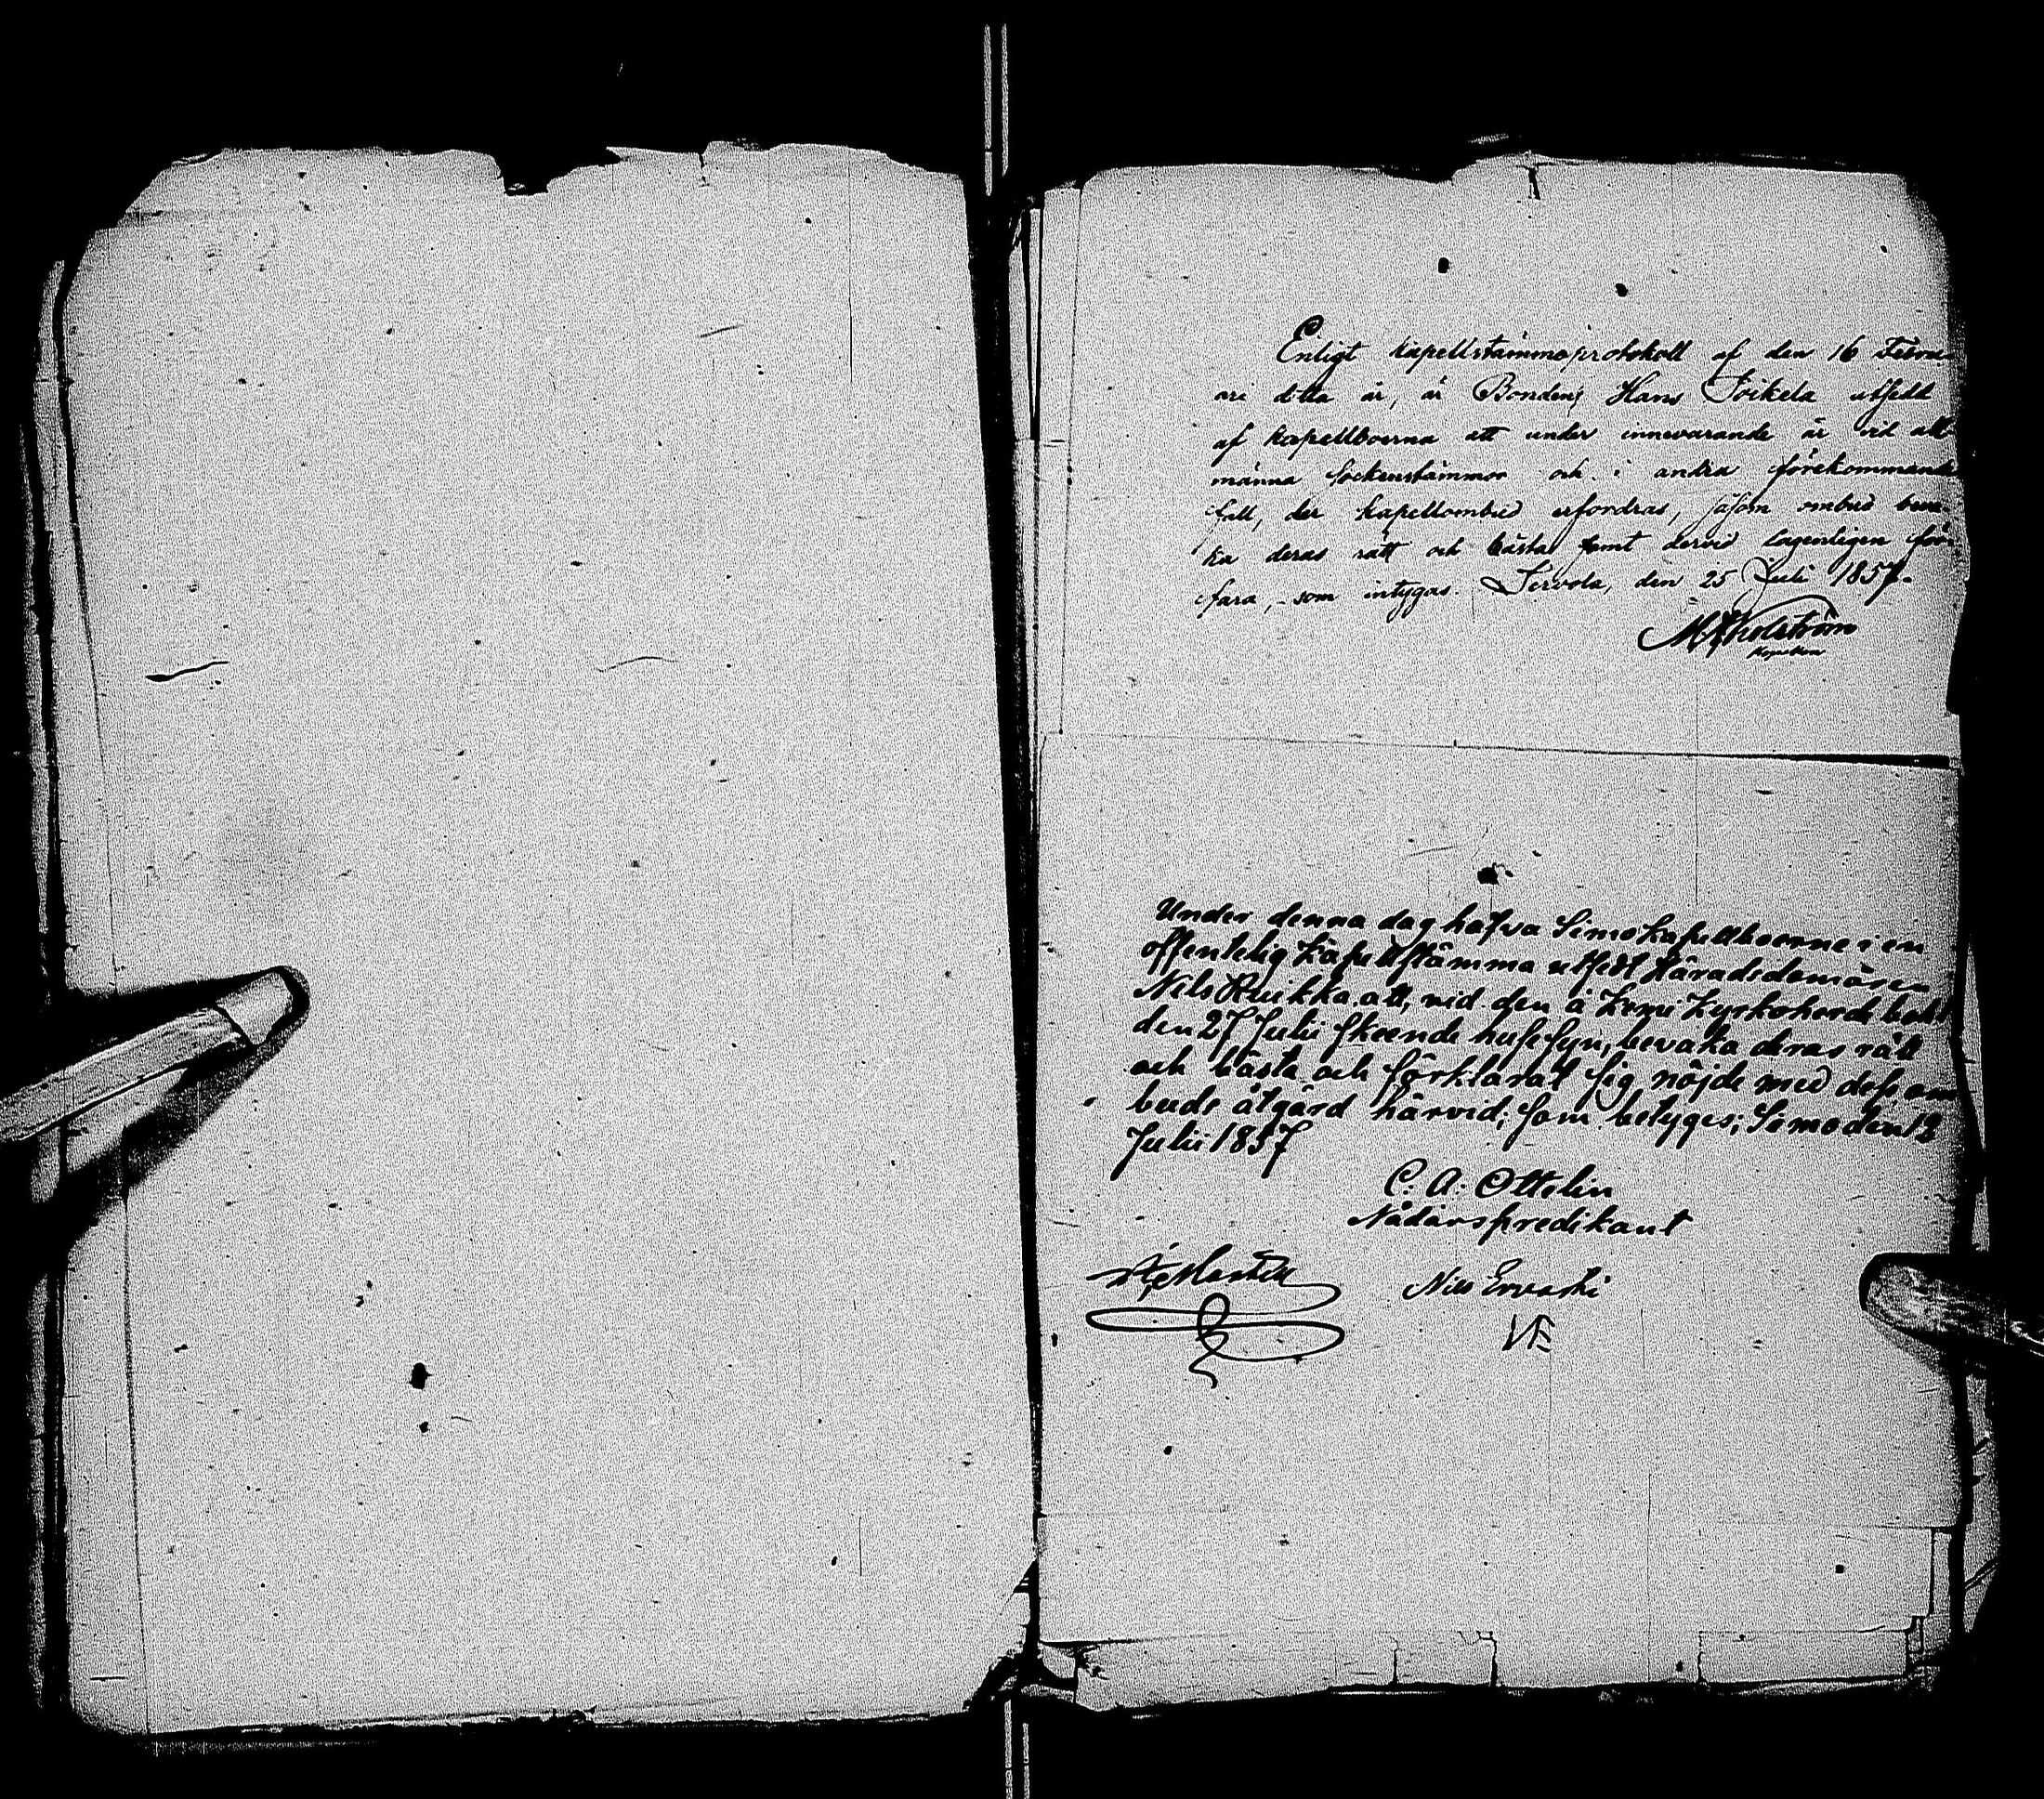 Enligt kapellstämmoprotokoll af den 16 Febru-
ari detta år, är Bonden Hans Toikela utsedt
af kapellboerna att under innevarande år vid all-
männa Sockenstämmor och i andra förekommande
fall, der kapellombud erfordras, såsom ombud beva-
ka deras rätt och bästa samt dervid lagenligen för-
fara, som intygas. Tervola, den 25 Juli 1857.
Under denna dag hafva Simo Kapellboerne i en
offentelig Kapellstämma utsedt Häradsdomären
Nils Ruikka att, vid den å Kemi Kyrkoherdebohl
den 27 Julii skeende husesyn, bevaka deras rätt
och bästa och förklarat sig nöjde med dess om-
buds åtgärd härvid; som betyges; Simo den 12
Julii 1857
C: A: Ottelin
Nådårspredikant
Nils Ervasti